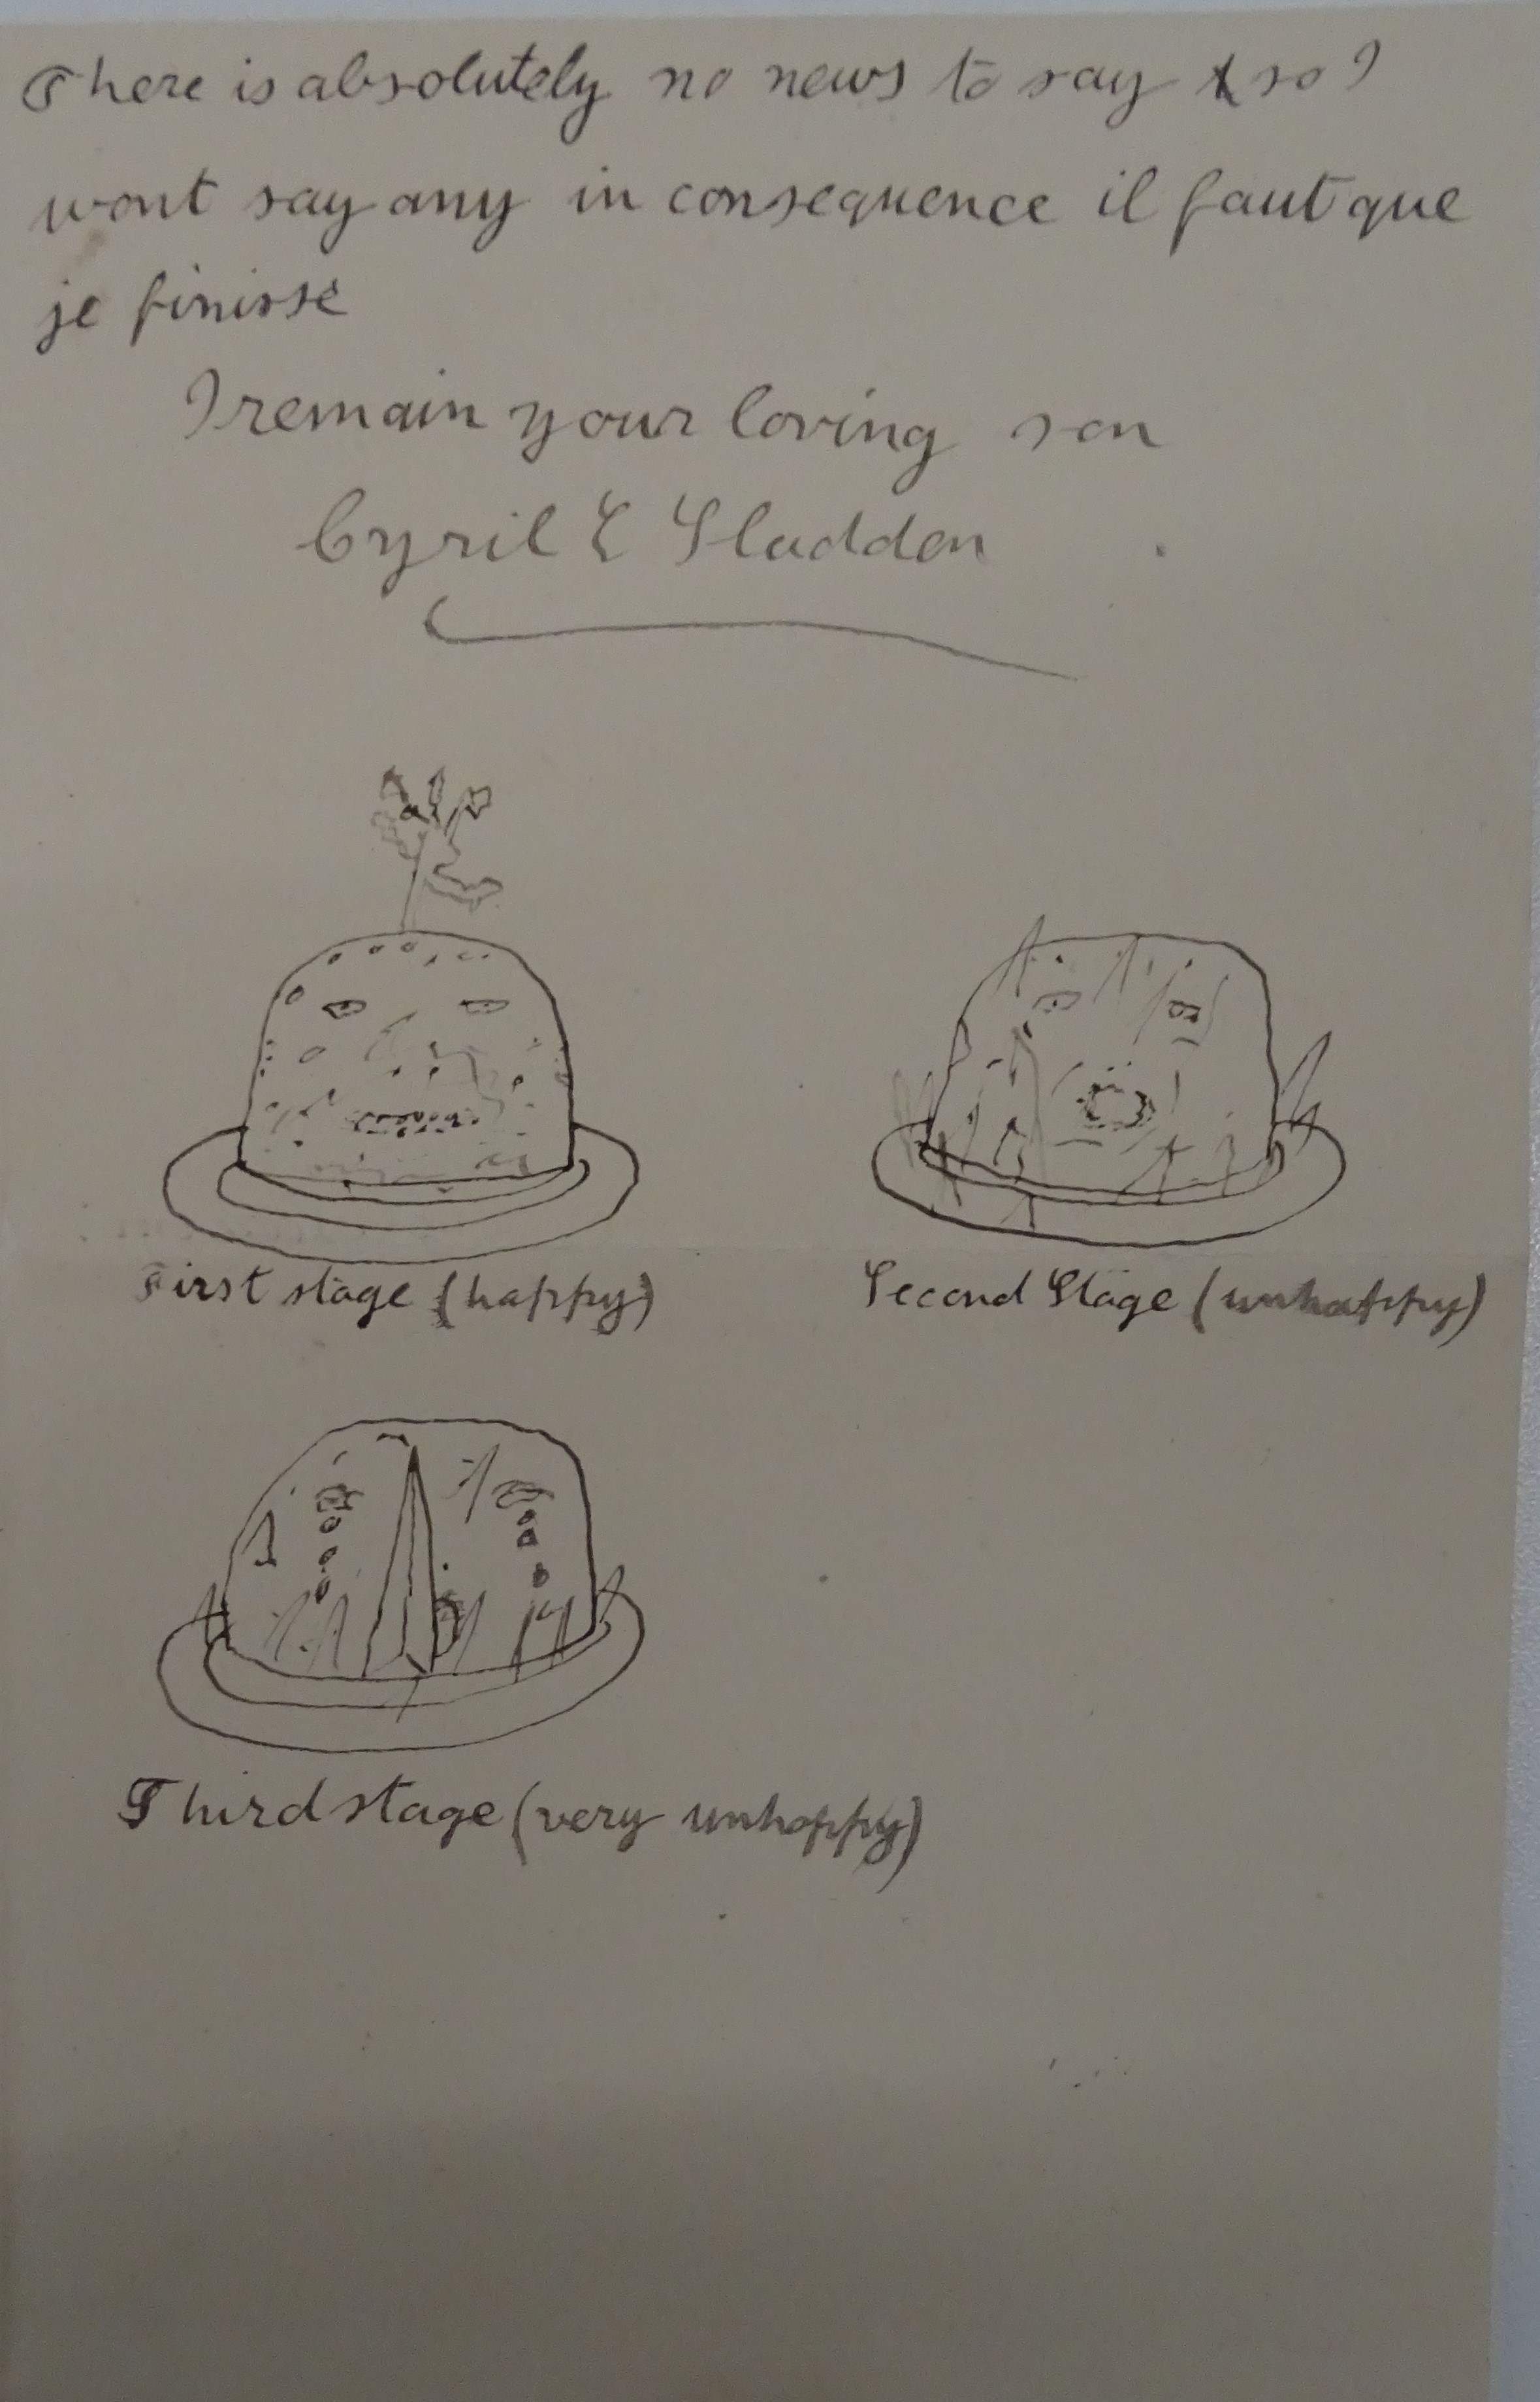 There is absolutely no news to say so I
wont say any in consequence il faut que
je finisse
I remain your loving son
Cyril E Sladden
First stage (happy)
Second Stage (unhappy)
Third stage (very unhappy)